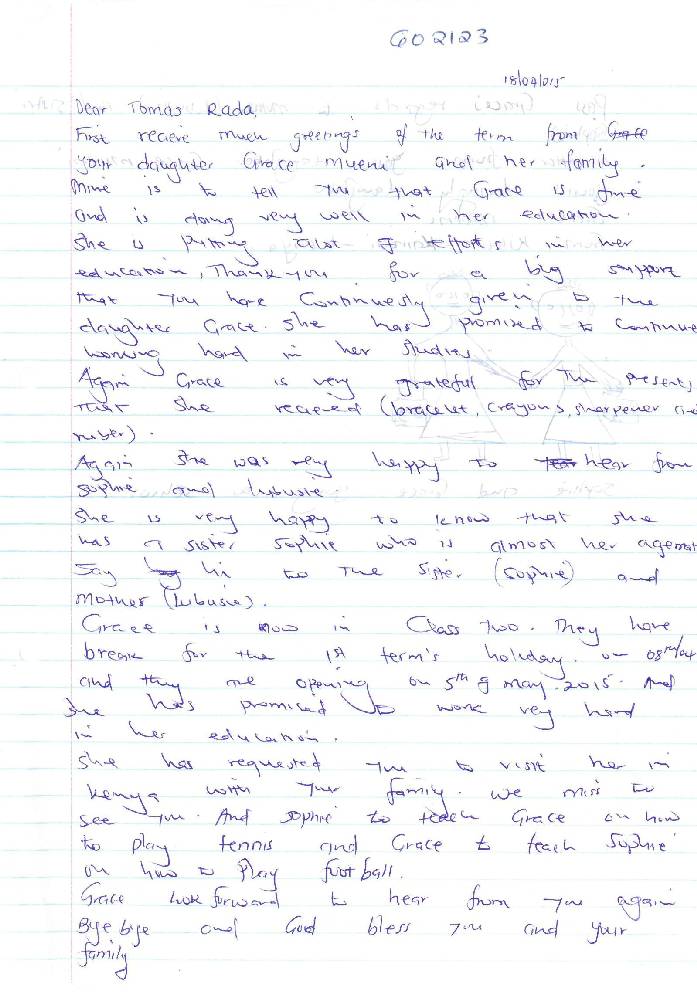 GO2123
18/04/015
Dear Tomas Rada,
First recieve much greetings of the term from Grace
your daughter Grace Mueni and her family.
Mine is to tell you that Grace is fine
and is doing very well in her education.
She is putting alot of efforts in her
education, Thank you for a big support
that you have Continuesly given to the
daughter Grace. She has promised to continue
working hard in her studies
Again Grace is very grateful for The presents
that she recieved (bracelet, crayons, sharpener and
ruber).
Again she was very happy to hear from
Sophie and Lubusie
She is very happy to know that she
has a sister Sophie who is almost her agemat
Say hi to The sister (Sophie) and
Mother (Lubusie).
Grace is now in Class Two. They have
break for the 1st term's holiday. on 08th/04
and they are opening on 5th of may. 2015. And
she has promised to work very hard
in her education.
She has requested you to visit her in
Kenya with your family. We miss to
see you. And Sophie to teach Grace on how
to play tennis and Grace to teach Sophie
on how to play football.
Grace look forward to hear from you again
Bye bye and God bless you and your
family